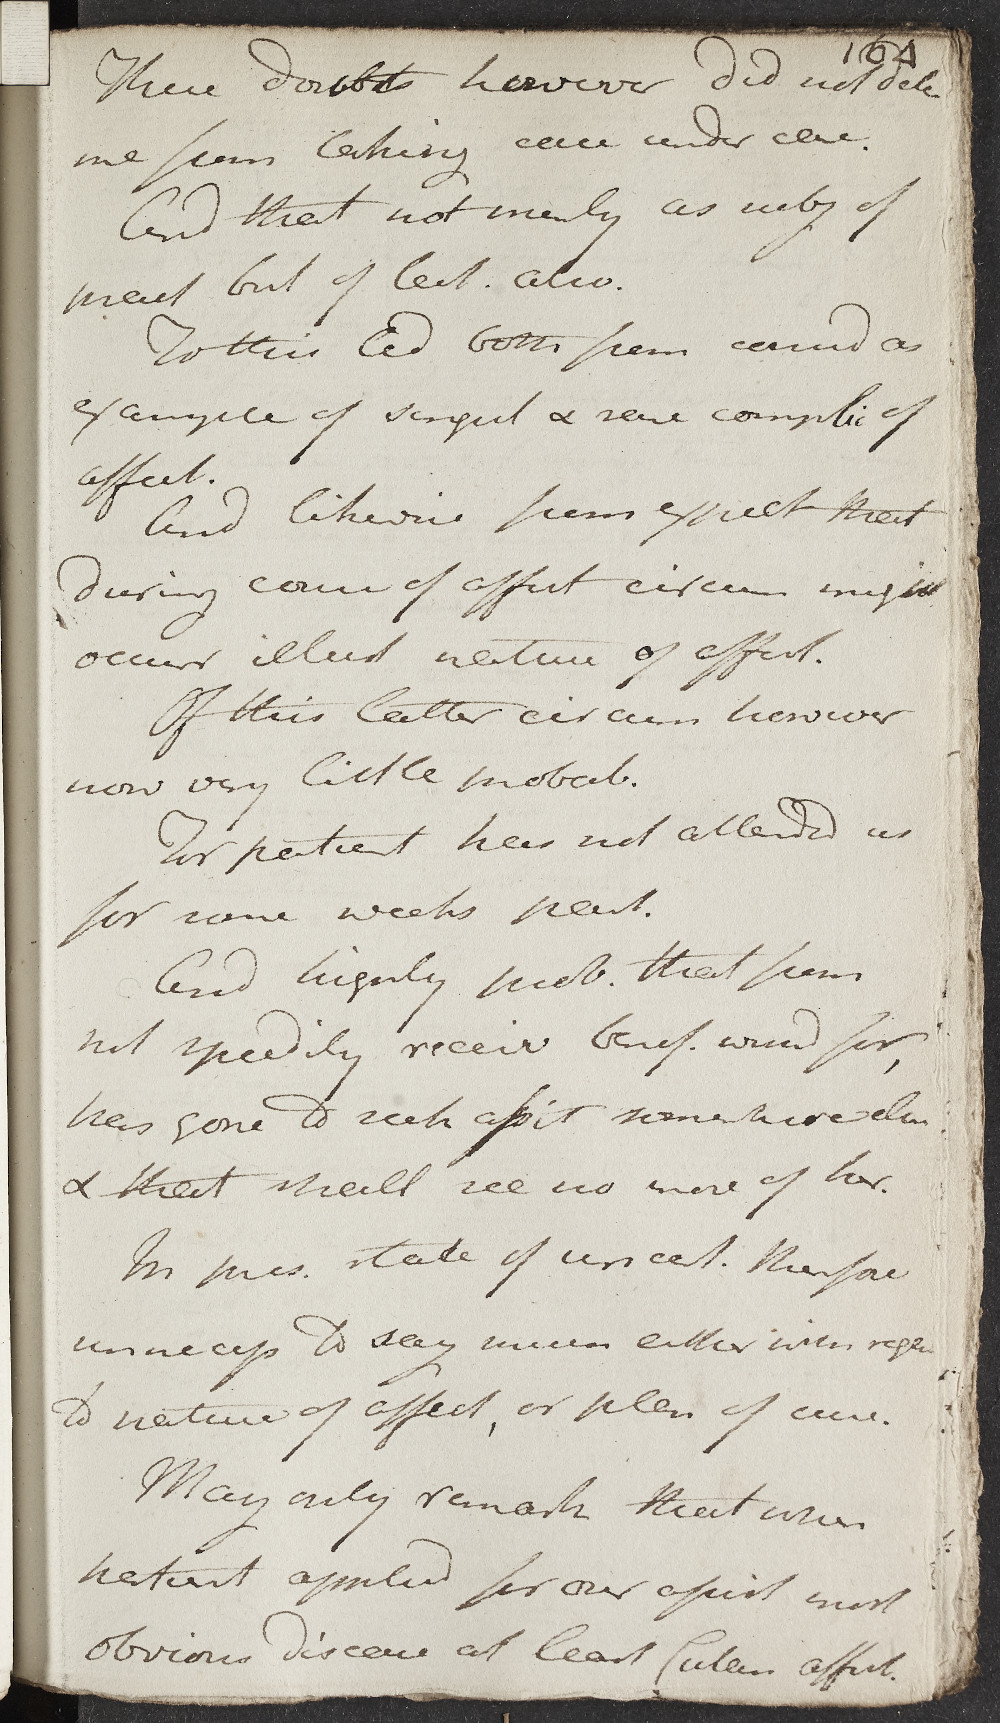 164
These doubts however did not dete
me from taking case under care.
And that not merely as subj of
pract but of lect. also.
To this led both from consid as
example of singul & rare complic of
affect.
And likewise from expect that
during course of affect circum might
occurr illust nature of affect.
Of this latter circum however
now very little probab.
For patient has not attended us
for some weeks past.
And highly prob. that from
not speedily receiv benef. wished for,
has gone to seek assist somewhere else
& that shall see no more of her.
In pres. state of uncert. therefore
unnecess to say much either with regar
to nature of affect, or plan of cure.
May only remark that when
patient applied for our assist most
obvious disease at least Cutan affect.